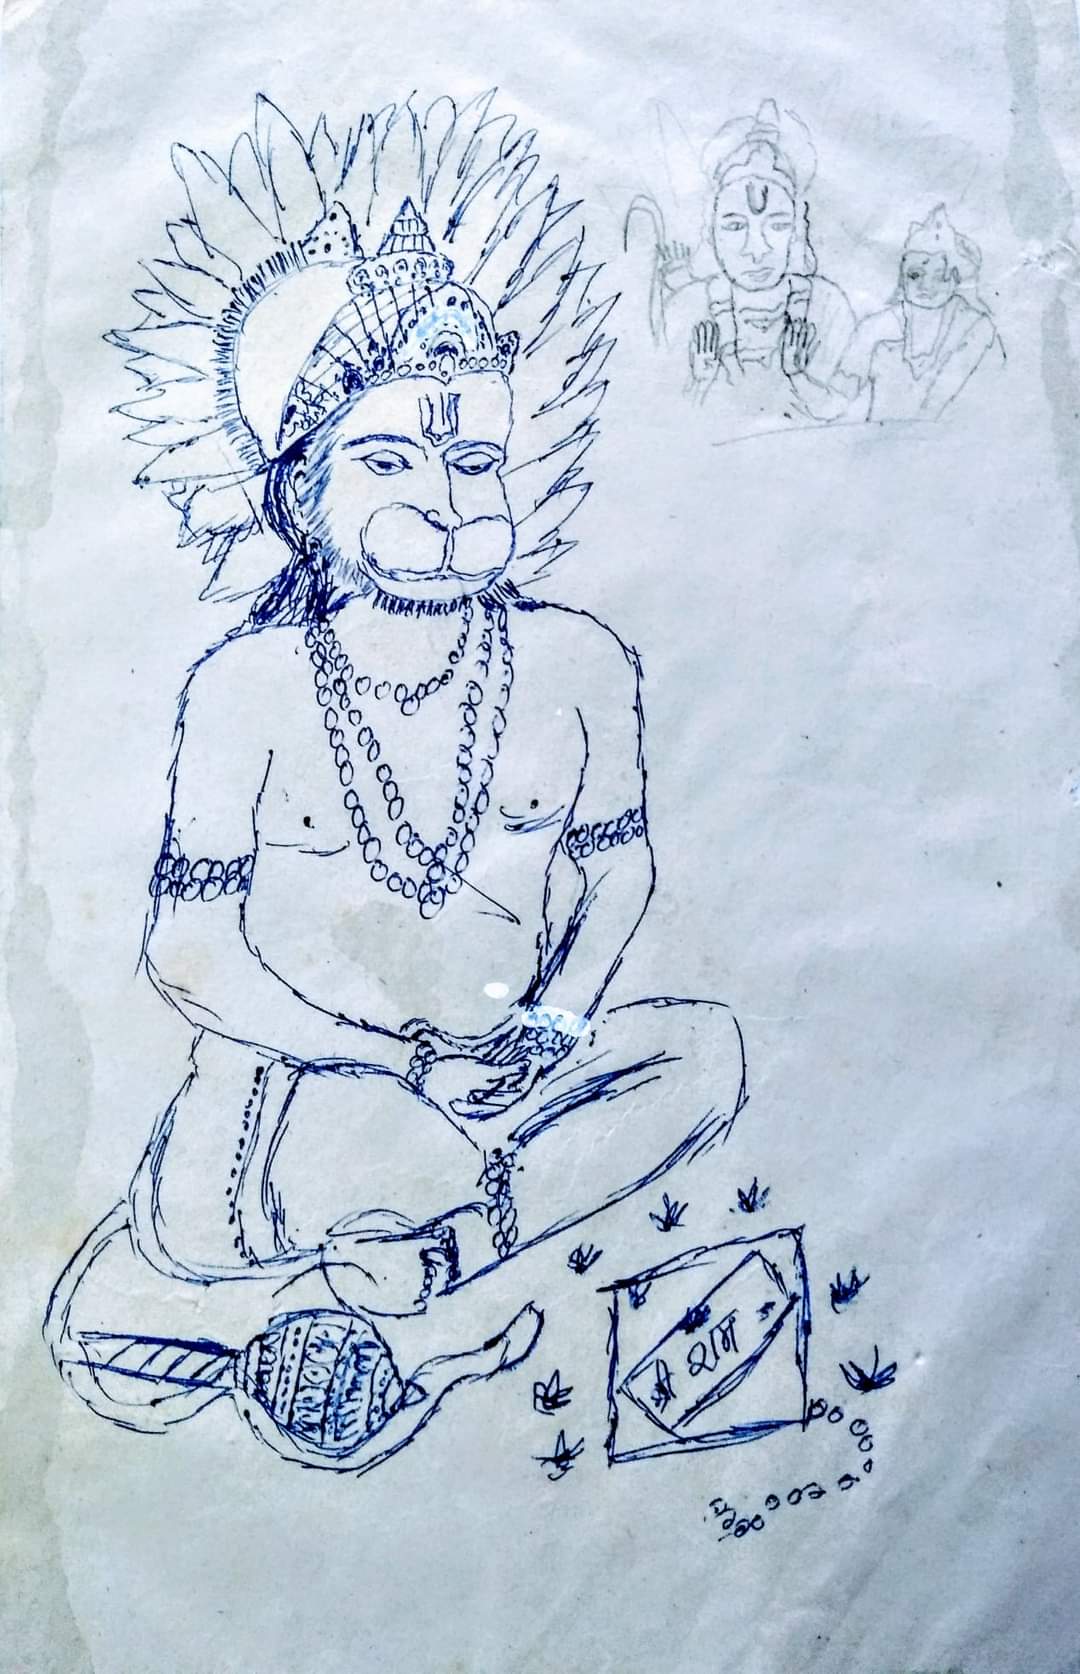 श्री राम